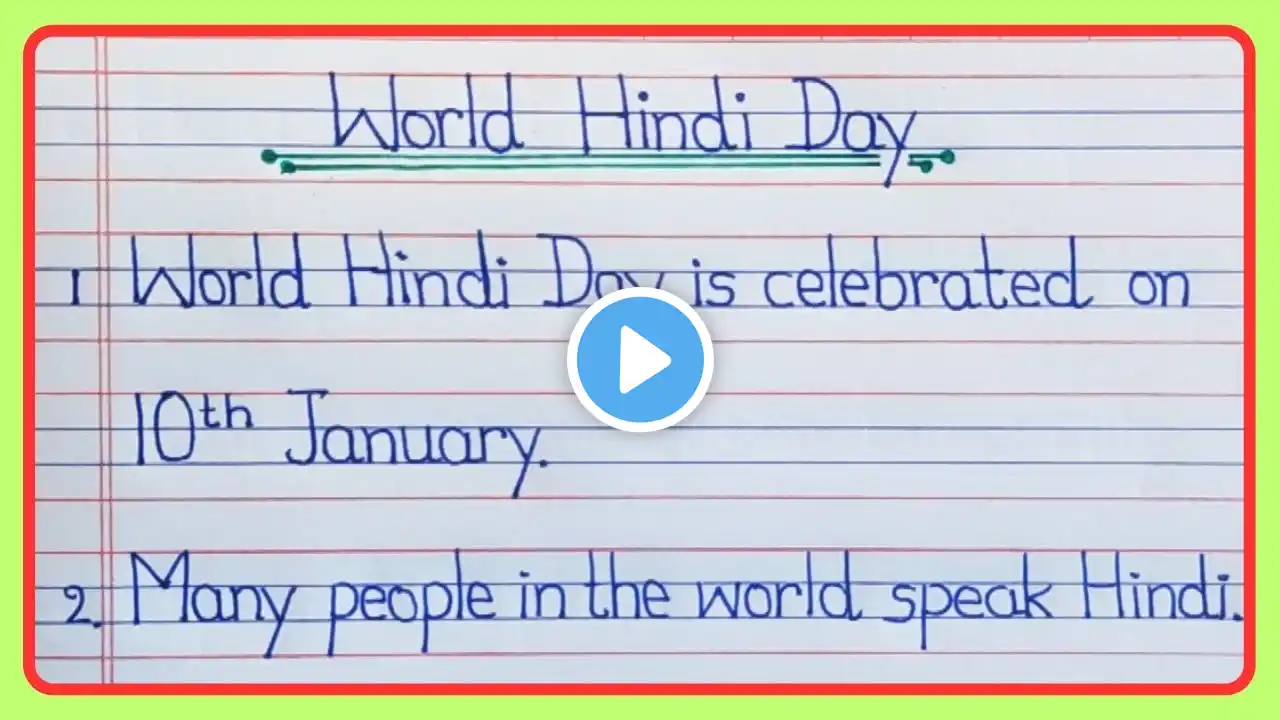 World Hindi Day
1 World Hindi Day is celebrated on
10th January.
2. Many people in the world speak Hindi.